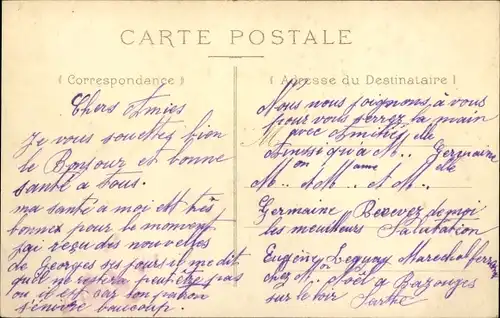 CARTE POSTALE
(Correspondance)
Chers Amies
Je vous souettes bien
le Bonjour et bonne
santé a tous.
ma santé a moi est très
bonnes pour le moment
j'ai reçu des nouvelles
de Georges ses jours il me dit
qu'il ne restera peut être pas
ou il est car son patron
s'enivre beaucoup.
(Adresse du Destinataire)
Nous nous joignons, à vous
pour vous serrez la main
avec Amitiés, de
Ainssi qu'a M.. Germaine
M..on M..ame et M..elle
Germaine Recevez de moi
les meilleurs Salutation
Eugène Leguay Marechal ferrant
chez Mr Noël a Bazouges
sur le loir Sarthe